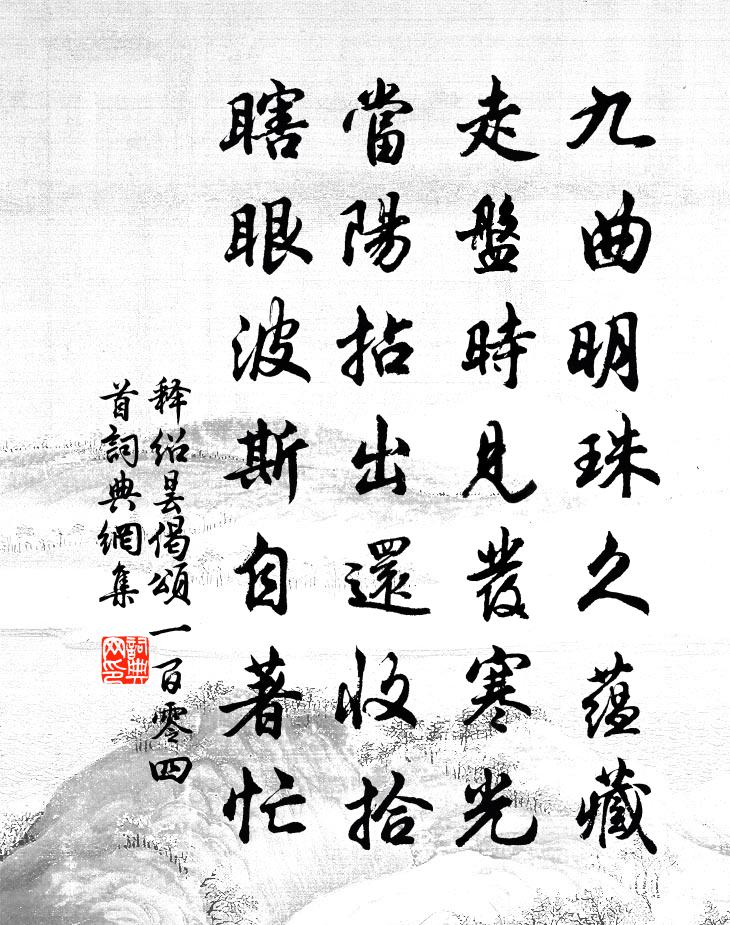 九曲明珠久蘊藏
走盤時見發寒光
當陽拈出還收拾
瞎眼波斯自著忙
释绍昙偈頌一百零四
首詞典網集
詞典
网印